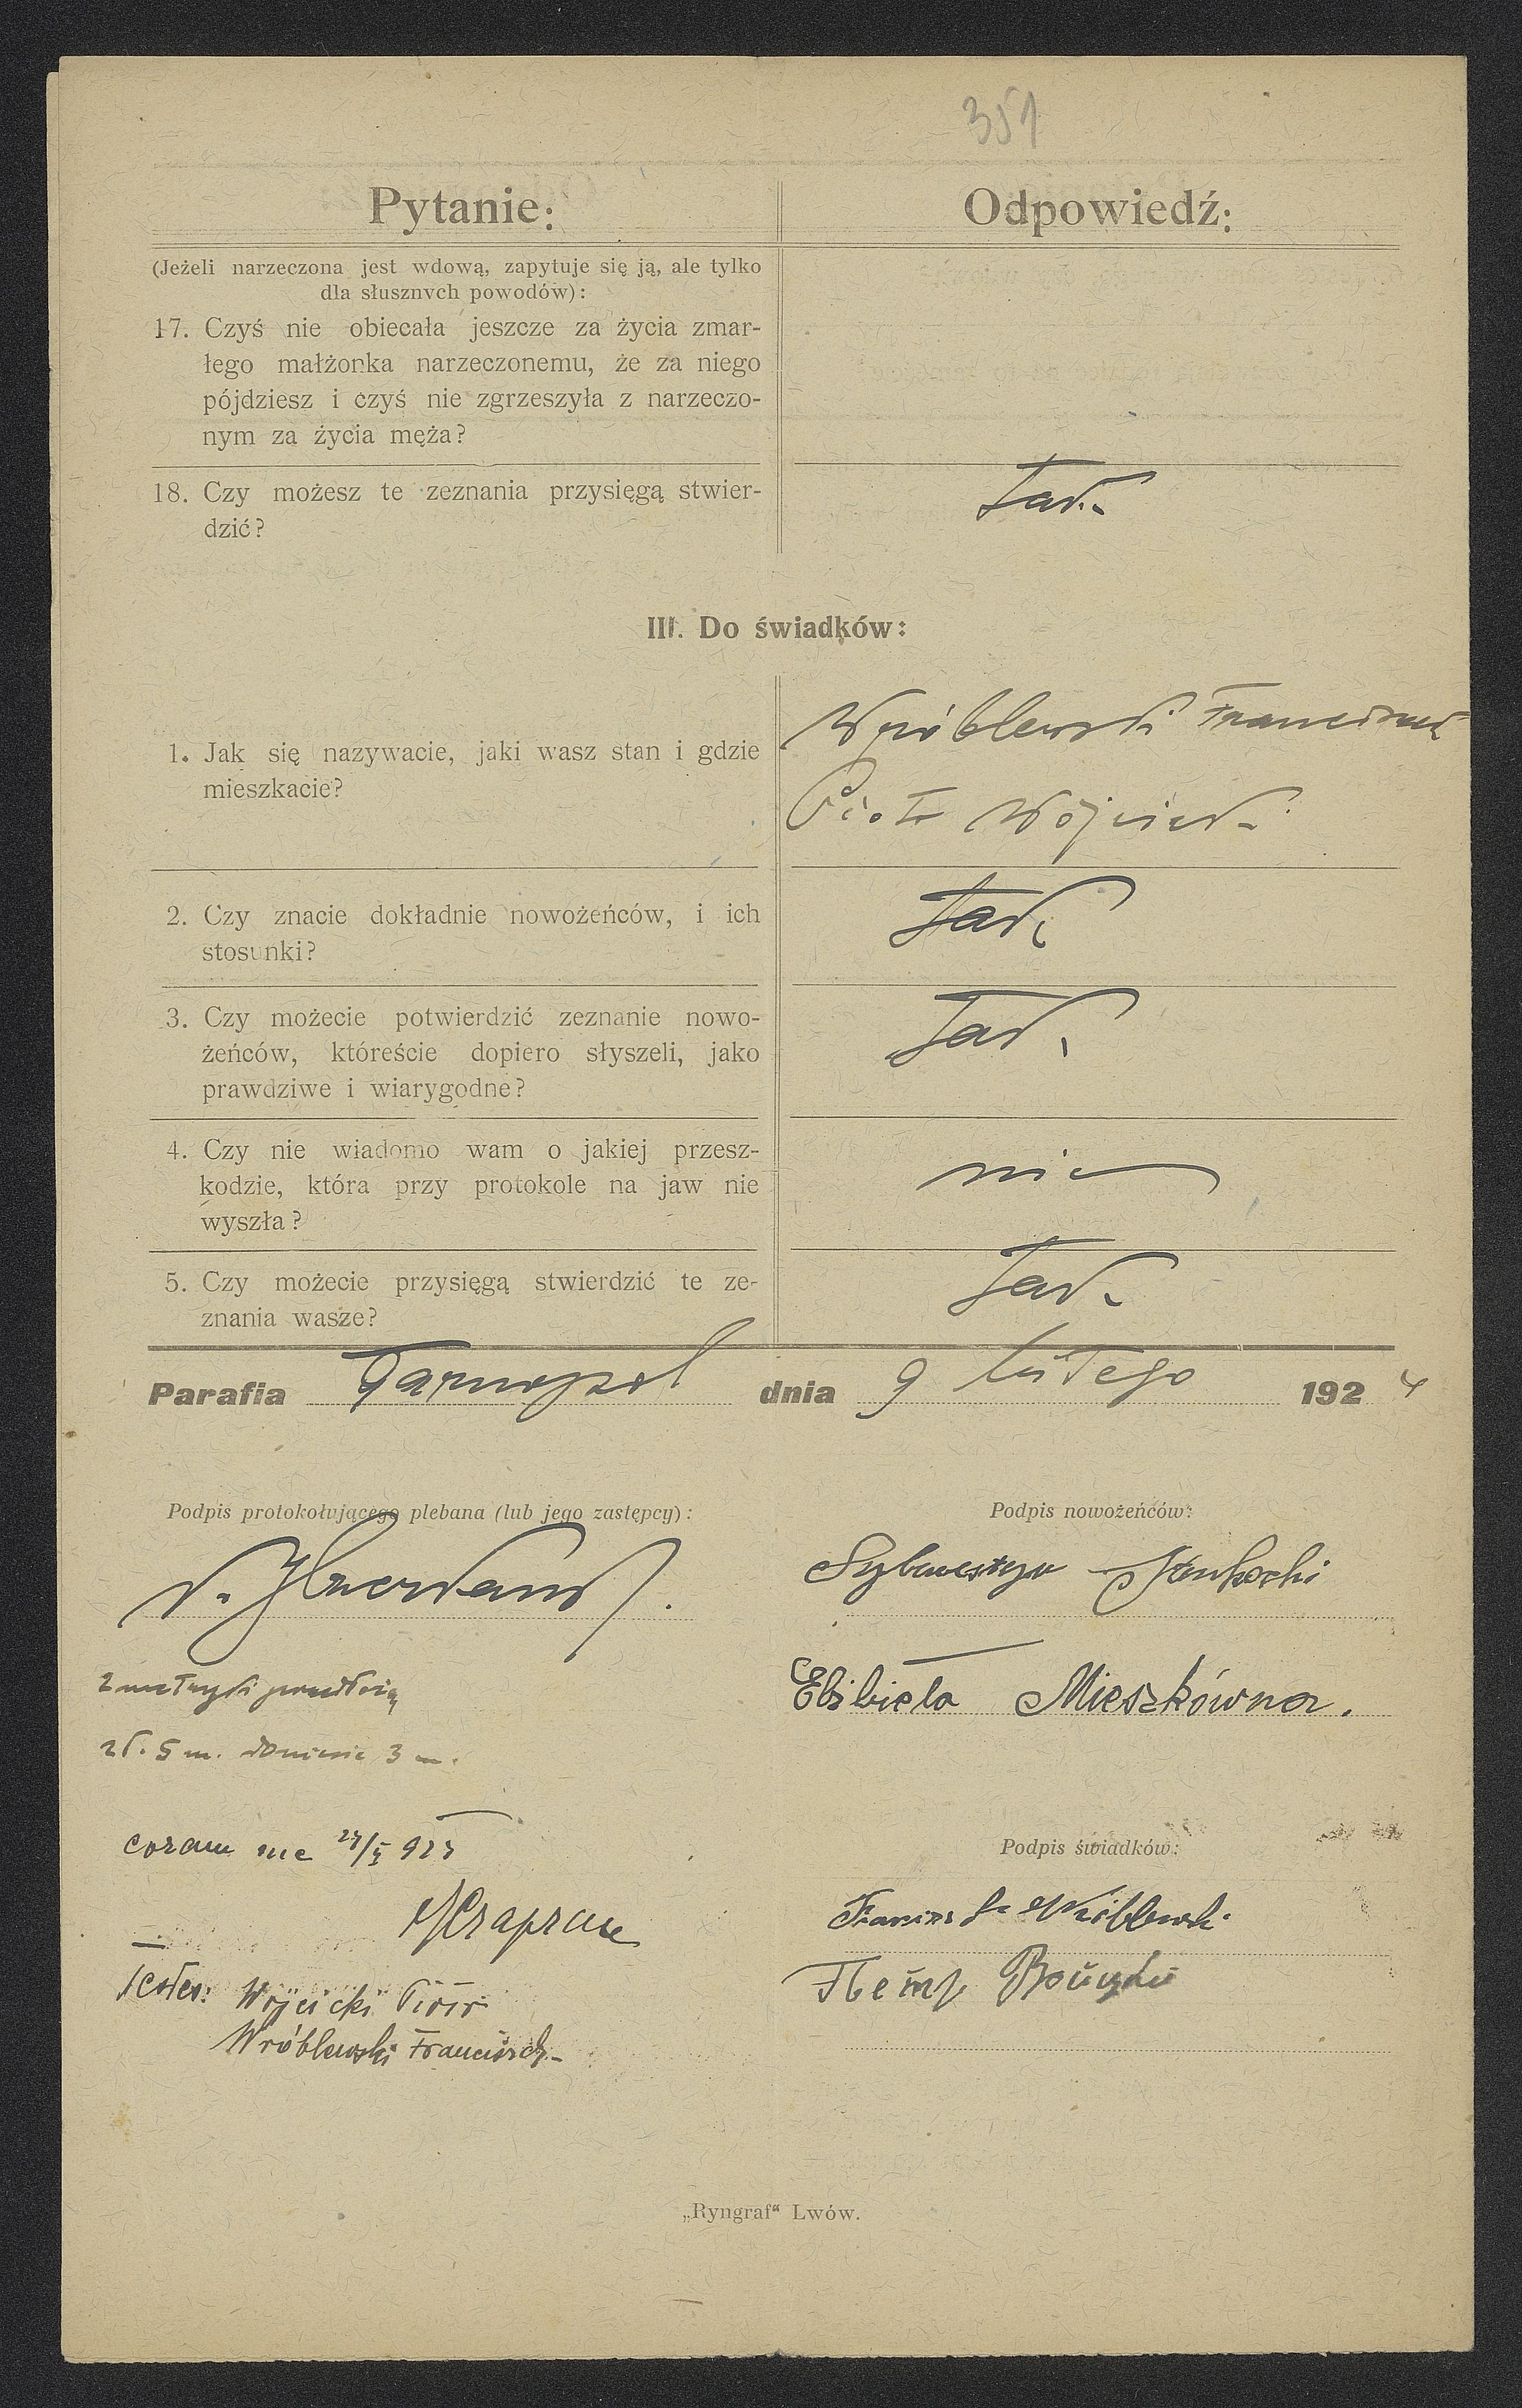 351
Pytanie:
Odpowiedź:
(Jeżeli narzeczona jest wdową, zapytuje się ją, ale tylko
dla słusznych powodów):
17. Czyś nie obiecała jeszcze za życia zmar-
łego małżonka narzeczonemu, że za niego
pójdziesz i czyś nie zgrzeszyła z narzeczo-
nym za życia męża?
18. Czy możesz te zeznania przysięgą stwier-
dzić?
Tak.
III. Do świadków:
1. Jak się nazywacie, jaki wasz stan i gdzie
mieszkacie?
Wróblewski Franciszek
Piotr Wójcicki
2. Czy znacie dokładnie nowożeńców, i ich
stosunki?
Tak.
3. Czy możecie potwierdzić zeznanie nowo-
żeńców, któreście dopiero słyszeli, jako
prawdziwe i wiarygodne?
Tak.
4. Czy nie wiadomo wam o jakiej przesz-
kodzie, która przy protokole na jaw nie
wyszła?
nie
5. Czy możecie przysięgą stwierdzić te ze-
znania wasze?
Tak.
Parafia Tarnopol dnia 9 lutego 1924
Podpis protokołującego plebana (lub jego zastępcy):
Podpis nowożeńców:
Sylwester
Elżbieta Mieszkówna.
5 m. 3 m.
coram me 923
Podpis świadków:
Wróblewski
Testes: Wójcicki Piotr
Wróblewski Franciszek
„Ryngraf“ Lwów.